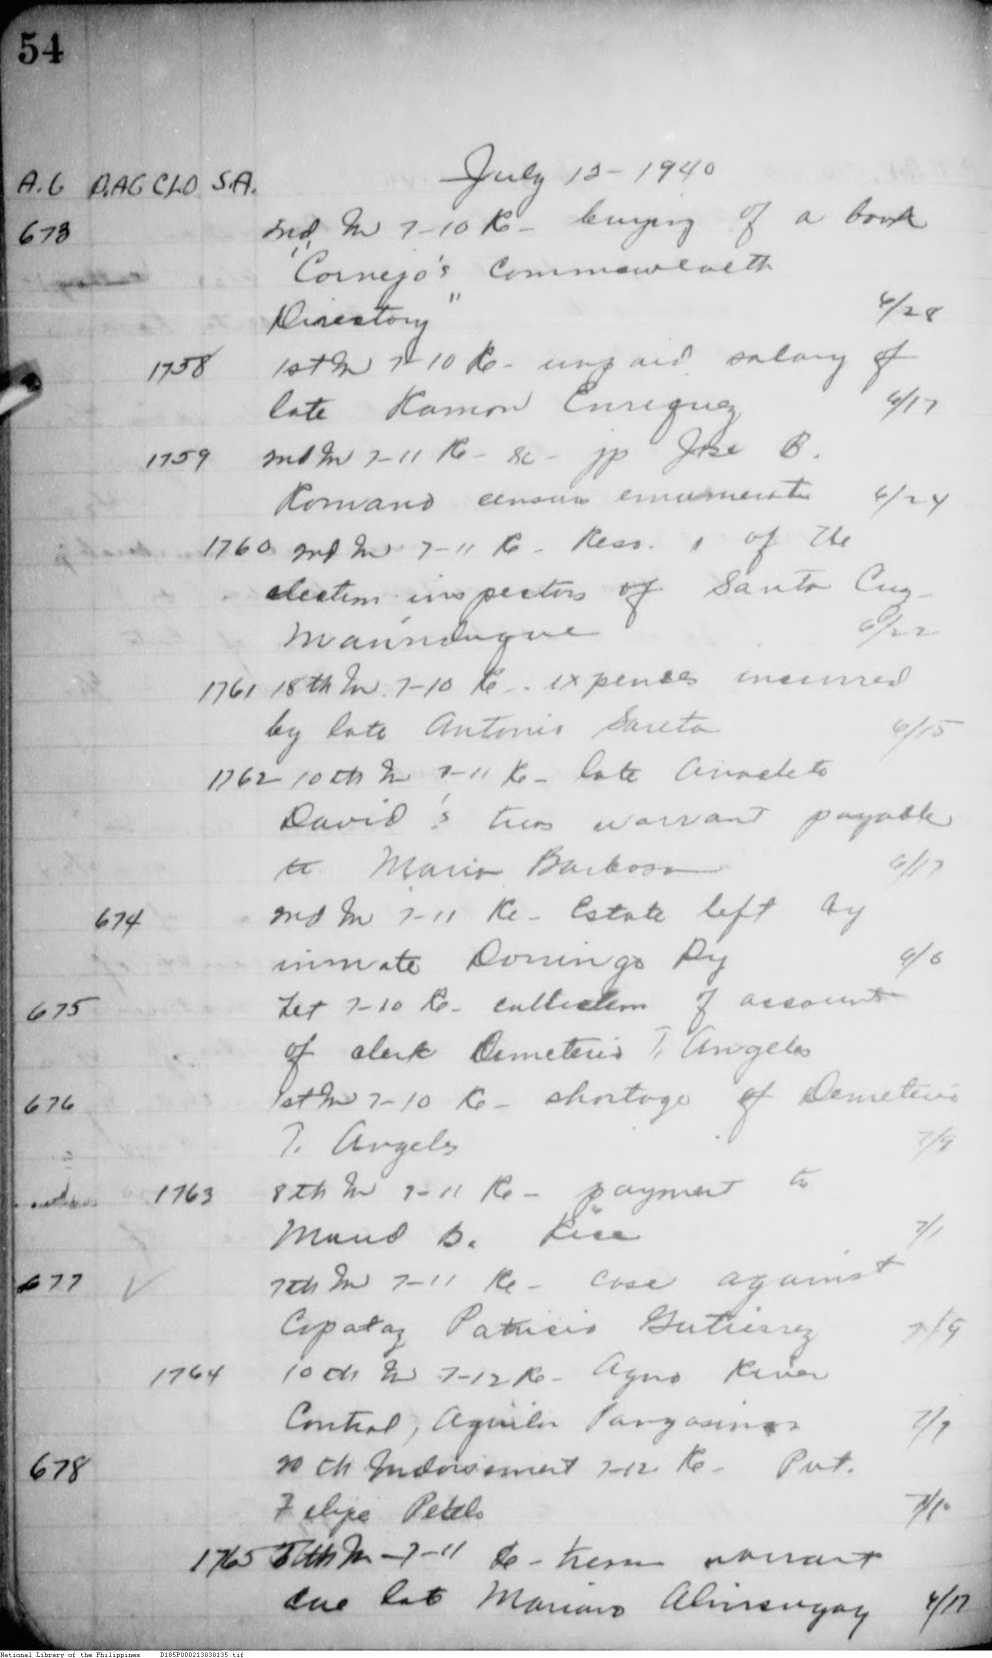 54
A.G D.AG CLO S.A. July 12-1940
673 2nd In 7-10 Re- buying of a book
"Cornejo's Commonwealth
Directory" 6/28
1758 1st In 7-10 Re- unpaid salary of
late Ramon Enriquez 6/17
1759 2nd In 7-11 Re- sc- jp Jose B.
Romano census enumerator 6/24
1760 2nd In 7-11 Re- Reso. 1 of the
election inspectors of Santa Cruz
Marinduque 6/22
1761 18th In 7-10 Re- expenses incurred
by late Antonio 6/15
1762 10th In 7-11 Re- late Anacleto
David's treas warrant payable
to Maria Barbosa 6/17
674 2nd In 7-11 Re- Estate left by
inmate Domingo Dy 6/6
675 Let 7-10 Re- collection of account
of clerk Demetrio T. Angeles
676 1st In 7-10 Re- shortage of Demetrio
T. Angeles 7/9
1763 8th In 7-11 Re- payment to
Maud B. Rice 7/1
677 7th In 7-11 Re- case against
Capataz Patricio Gutierrez 7/9
1764 10th In 7-12 Re- Agno River
Control, Aguilar Pangasinan 7/9
678 20th Indorsement 7-12 Re- Pvt.
Felipe 7/10
1765 5th In-7-11 Re- treas warrant
due late Mariano 6/17
National Library of the Philippines D185P000213830135.tif